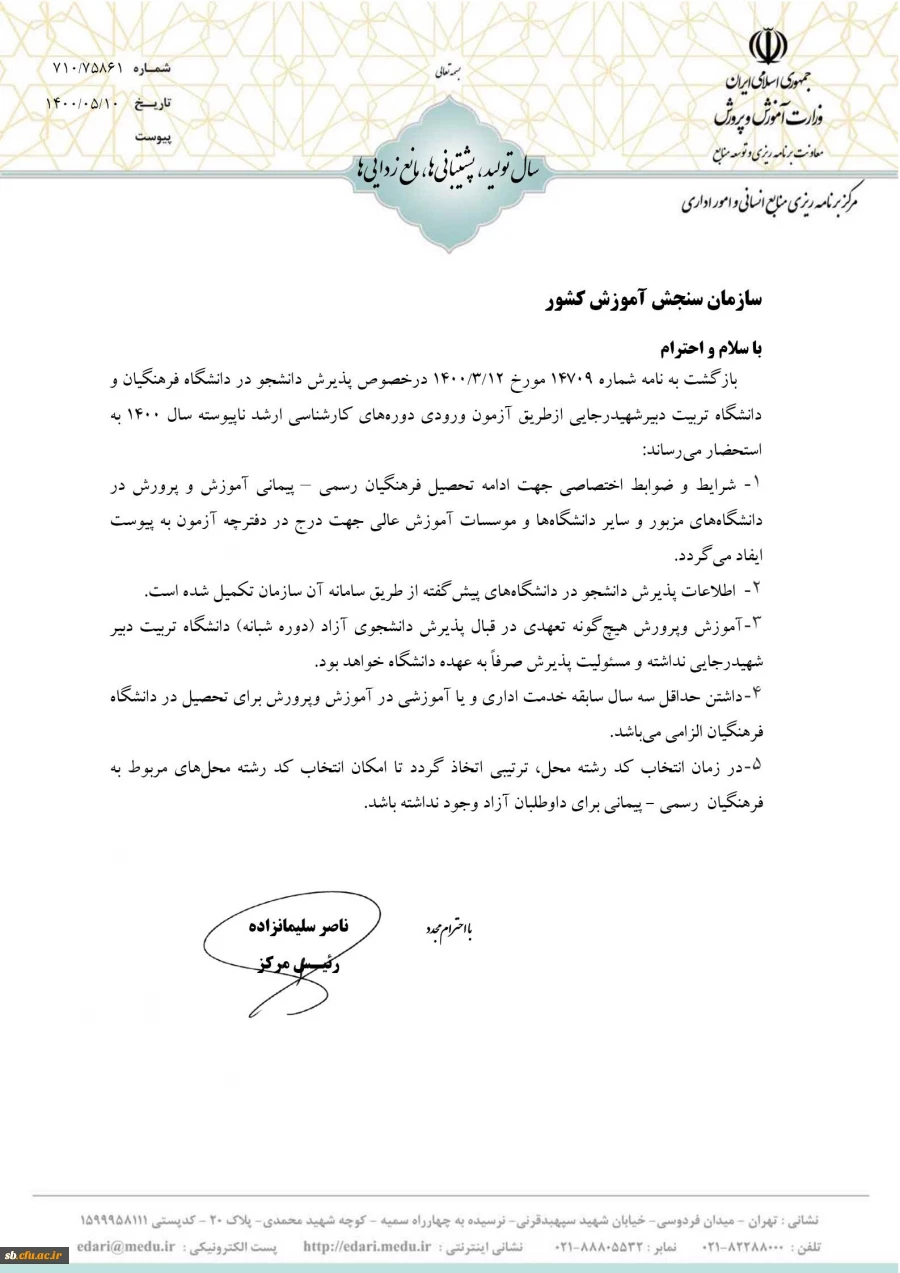 بسمه تعالی
جمهوری اسلامی ایران
وزارت آموزش و پرورش
معاونت برنامه ریزی و توسعه منابع
مرکز برنامه ریزی منابع انسانی و امور اداری
شماره ۷۱۰/۷۵۸۶۱
تاریخ ۱۴۰۰/۰۵/۱۰
پیوست
سال تولید، پشتیبانی‌ها، مانع زدایی‌ها
سازمان سنجش آموزش کشور
با سلام و احترام
بازگشت به نامه شماره ۱۴۷۰۹ مورخ ۱۴۰۰/۳/۱۲ درخصوص پذیرش دانشجو در دانشگاه فرهنگیان و
دانشگاه تربیت دبیرشهیدرجایی ازطریق آزمون ورودی دوره‌های کارشناسی ارشد ناپیوسته سال ۱۴۰۰ به
استحضار می‌رساند:
۱- شرایط و ضوابط اختصاصی جهت ادامه تحصیل فرهنگیان رسمی – پیمانی آموزش و پرورش در
دانشگاه‌های مزبور و سایر دانشگاه‌ها و موسسات آموزش عالی جهت درج در دفترچه آزمون به پیوست
ایفاد می‌گردد.
۲- اطلاعات پذیرش دانشجو در دانشگاه‌های پیش‌گفته از طریق سامانه آن سازمان تکمیل شده است.
۳-آموزش وپرورش هیچ‌گونه تعهدی در قبال پذیرش دانشجوی آزاد (دوره شبانه) دانشگاه تربیت دبیر
شهیدرجایی نداشته و مسئولیت پذیرش صرفاً به عهده دانشگاه خواهد بود.
۴-داشتن حداقل سه سال سابقه خدمت اداری و یا آموزشی در آموزش وپرورش برای تحصیل در دانشگاه
فرهنگیان الزامی می‌باشد.
۵-در زمان انتخاب کد رشته محل، ترتیبی اتخاذ گردد تا امکان انتخاب کد رشته محل‌های مربوط به
فرهنگیان رسمی - پیمانی برای داوطلبان آزاد وجود نداشته باشد.
با احترام مجدد
ناصر سلیمانزاده
رئیس مرکز
نشانی : تهران - میدان فردوسی- خیابان شهید سپهبدقرنی- نرسیده به چهارراه سمیه - کوچه شهید محمدی- پلاک ۲۰ - کدپستی ۱۵۹۹۹۵۸۱۱۱
تلفن : ۸۲۲۸۸۰۰۰-۰۲۱ نمابر : ۸۸۸۰۵۵۳۲-۰۲۱ نشانی اینترنتی : http://edari.medu.ir پست الکترونیکی : edari@medu.ir
sb.cfu.ac.ir